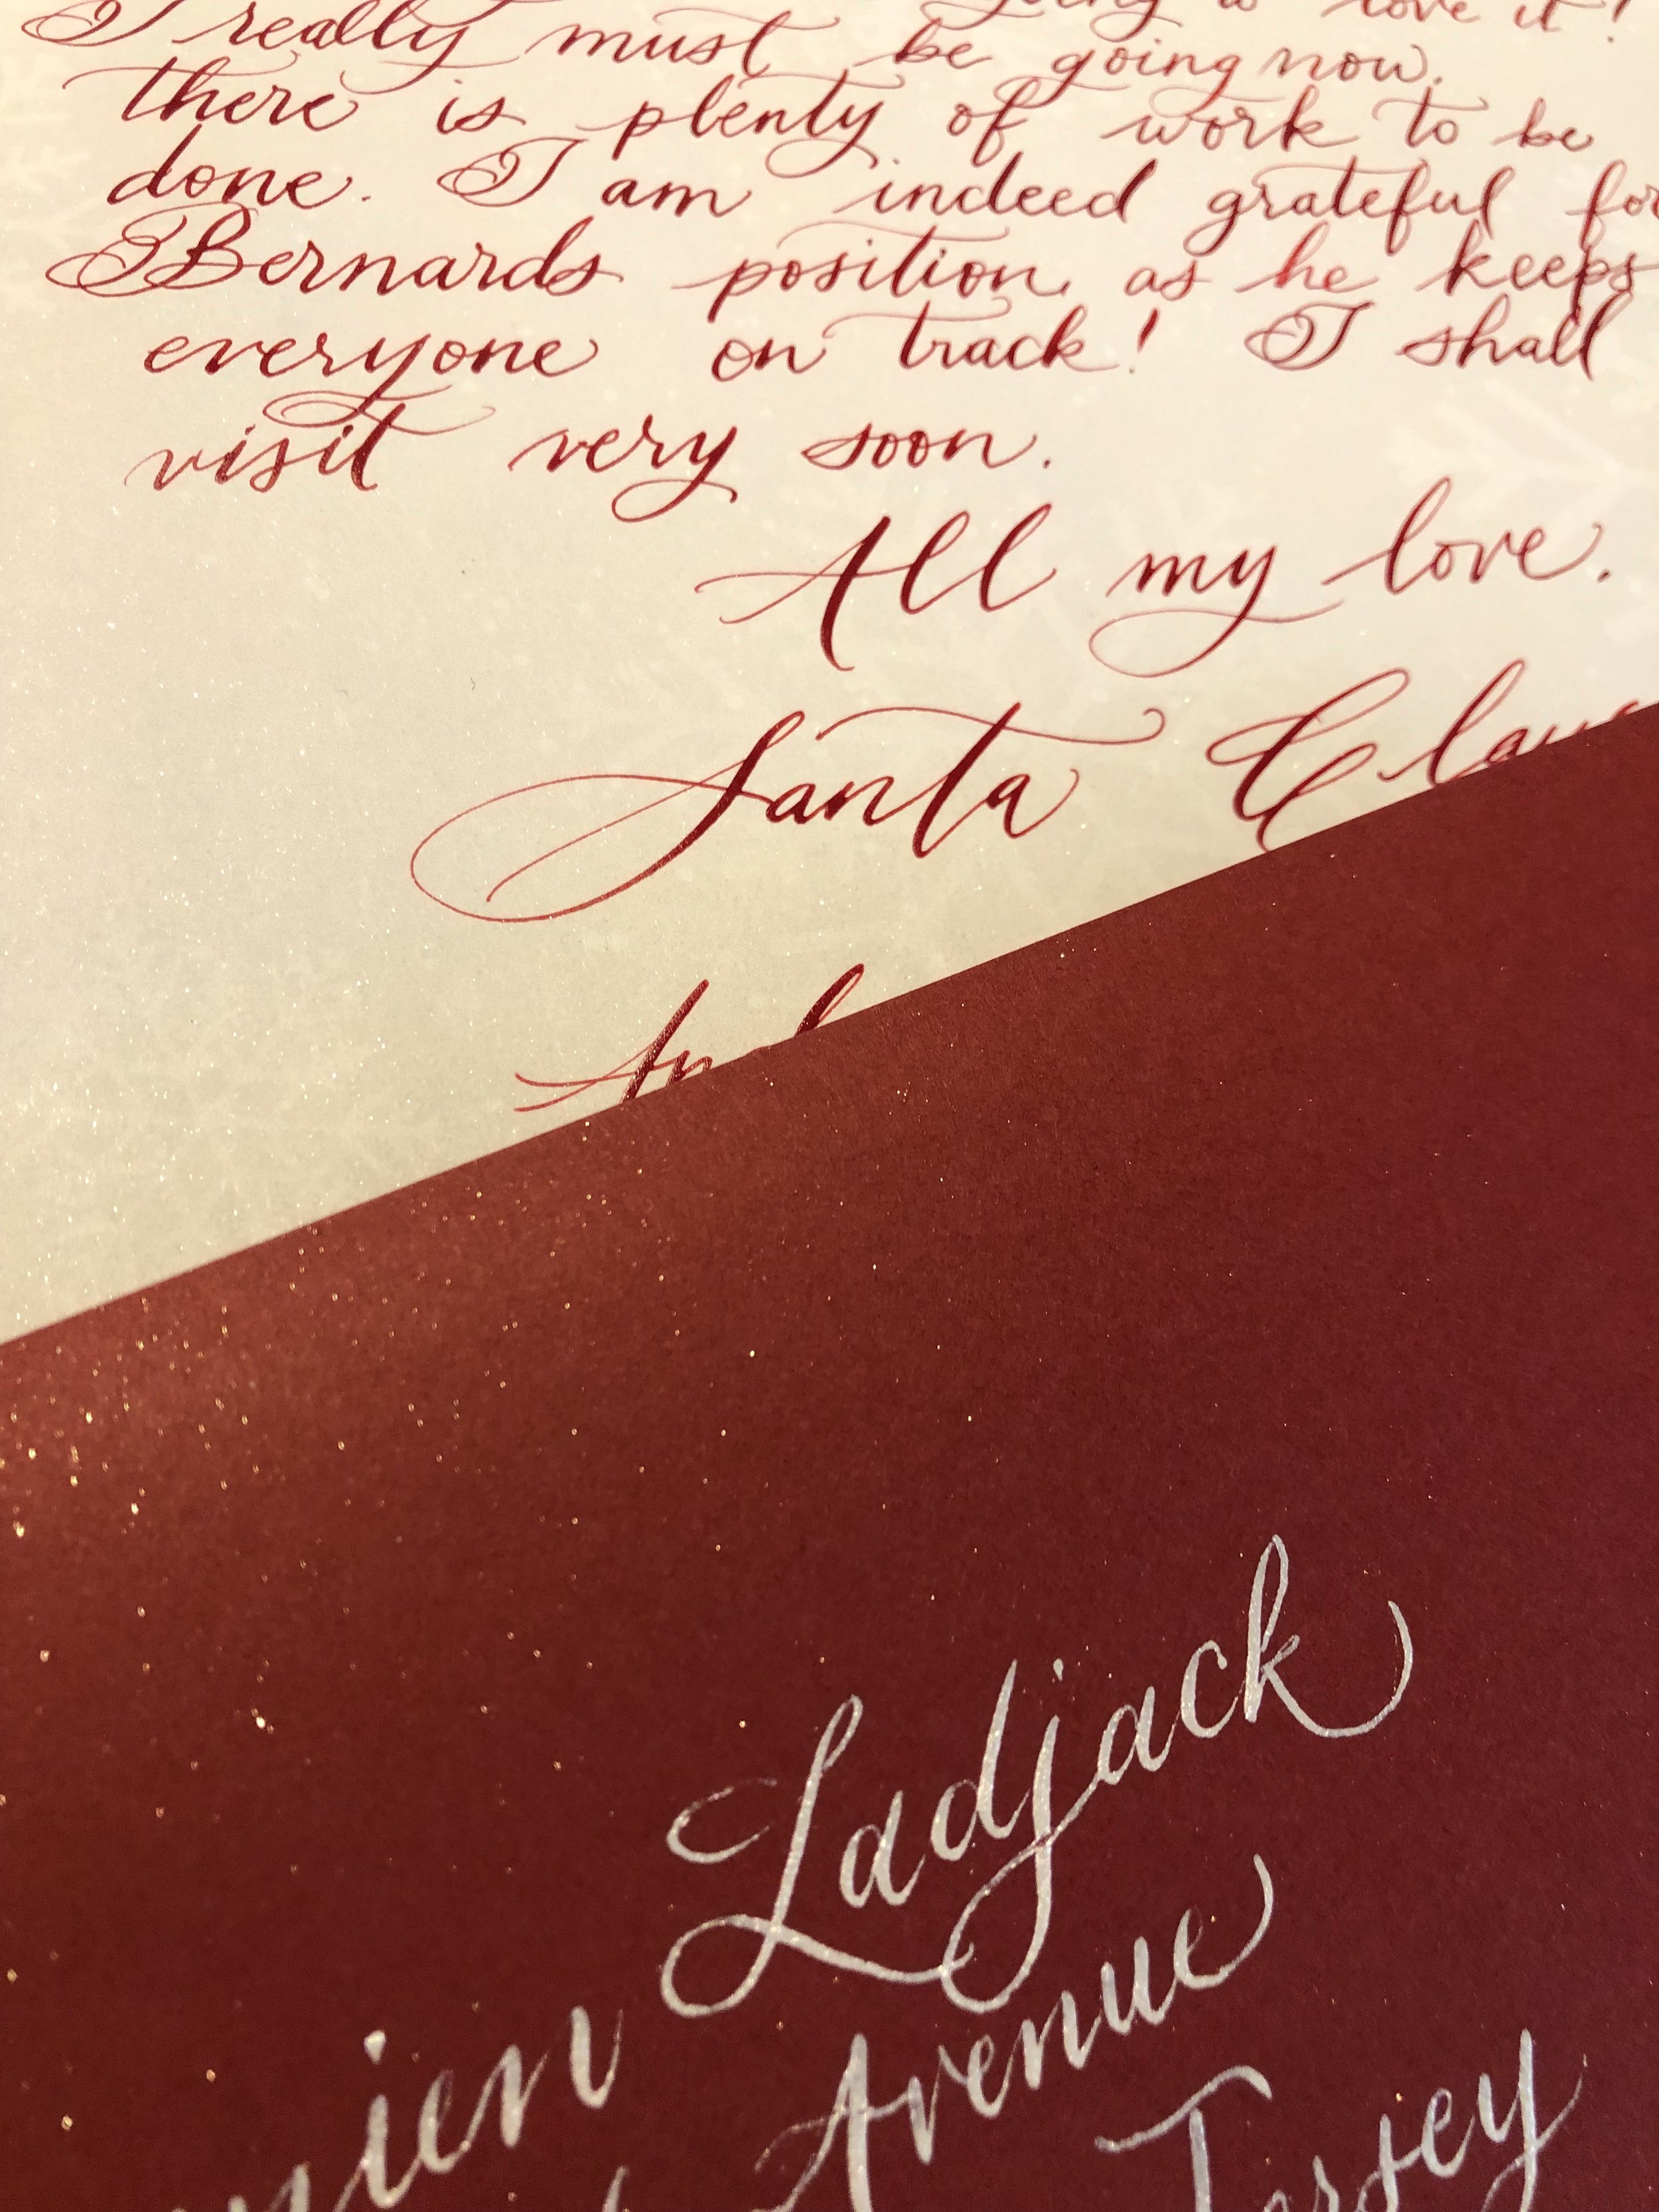 going to love it!
I really must be going now.
there is plenty of work to be
done. I am indeed grateful for
Bernards position, as he keeps
everyone on track! I shall
visit very soon.
All my love.
Santa
Ladjack
Avenue
Jersey